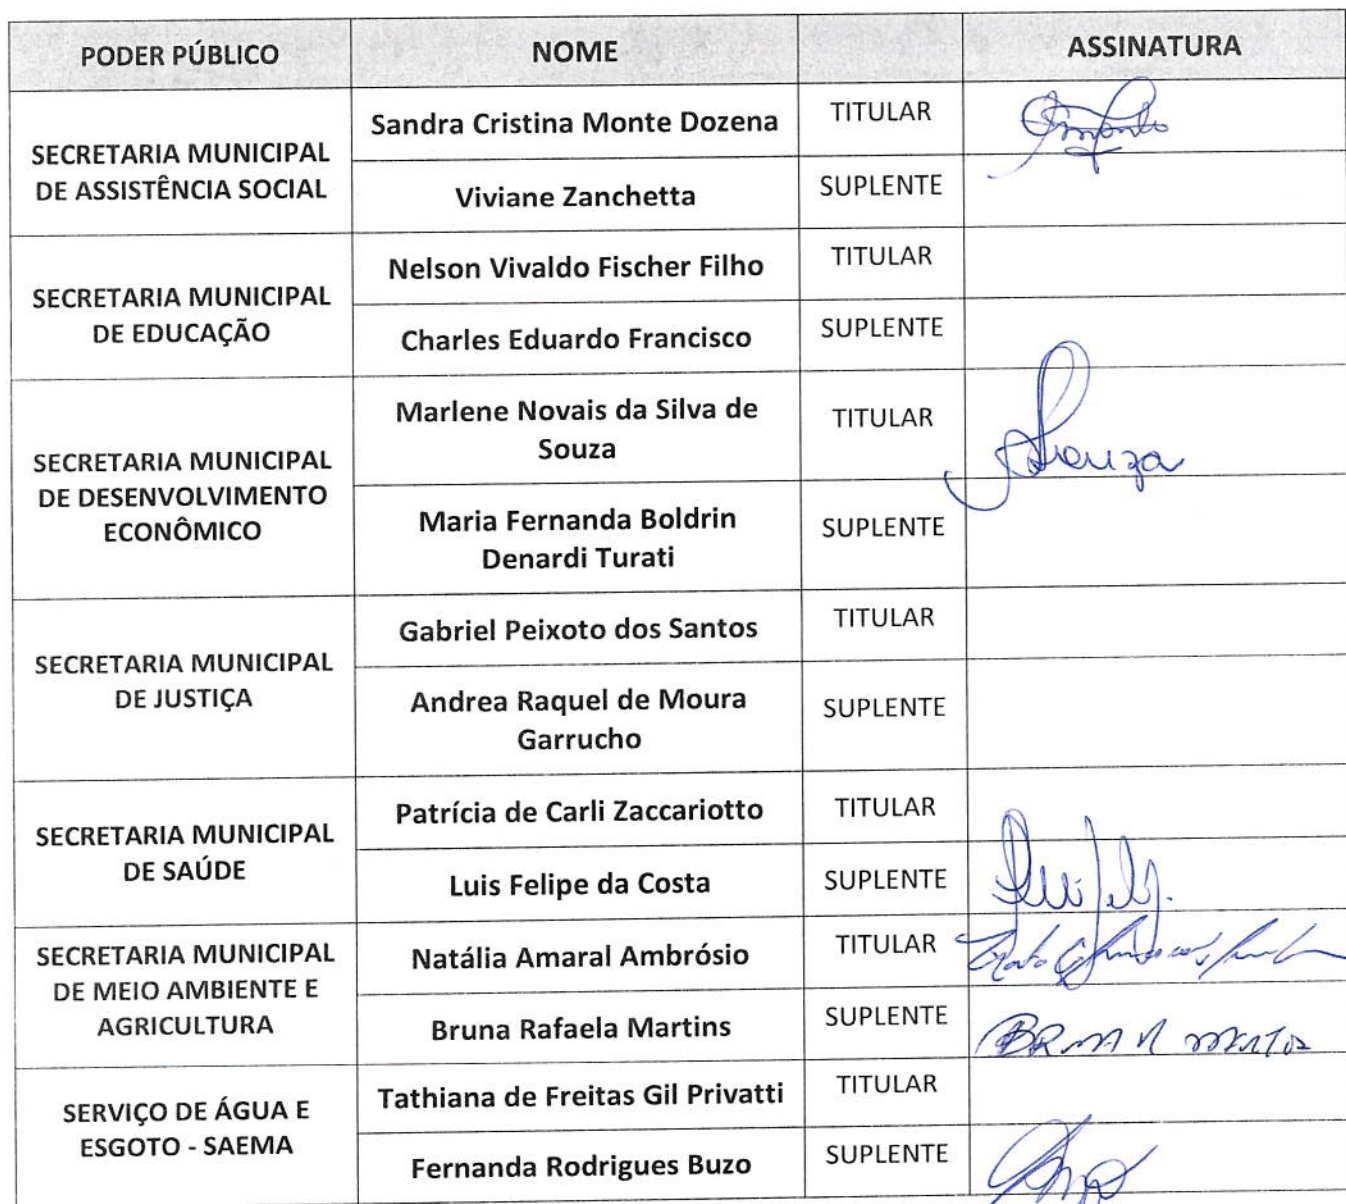 PODER PÚBLICO NOME ASSINATURA
SECRETARIA MUNICIPAL
DE ASSISTÊNCIA SOCIAL
Sandra Cristina Monte Dozena TITULAR
Viviane Zanchetta SUPLENTE
SECRETARIA MUNICIPAL
DE EDUCAÇÃO
Nelson Vivaldo Fischer Filho TITULAR
Charles Eduardo Francisco SUPLENTE
SECRETARIA MUNICIPAL
DE DESENVOLVIMENTO
ECONÔMICO
Marlene Novais da Silva de
Souza
TITULAR
Souza
Maria Fernanda Boldrin
Denardi Turati
SUPLENTE
SECRETARIA MUNICIPAL
DE JUSTIÇA
Gabriel Peixoto dos Santos TITULAR
Andrea Raquel de Moura
Garrucho
SUPLENTE
SECRETARIA MUNICIPAL
DE SAÚDE
Patrícia de Carli Zaccariotto TITULAR
Luis Felipe da Costa SUPLENTE
SECRETARIA MUNICIPAL
DE MEIO AMBIENTE E
AGRICULTURA
Natália Amaral Ambrósio TITULAR
Bruna Rafaela Martins SUPLENTE
SERVIÇO DE ÁGUA E
ESGOTO - SAEMA
Tathiana de Freitas Gil Privatti TITULAR
Fernanda Rodrigues Buzo SUPLENTE